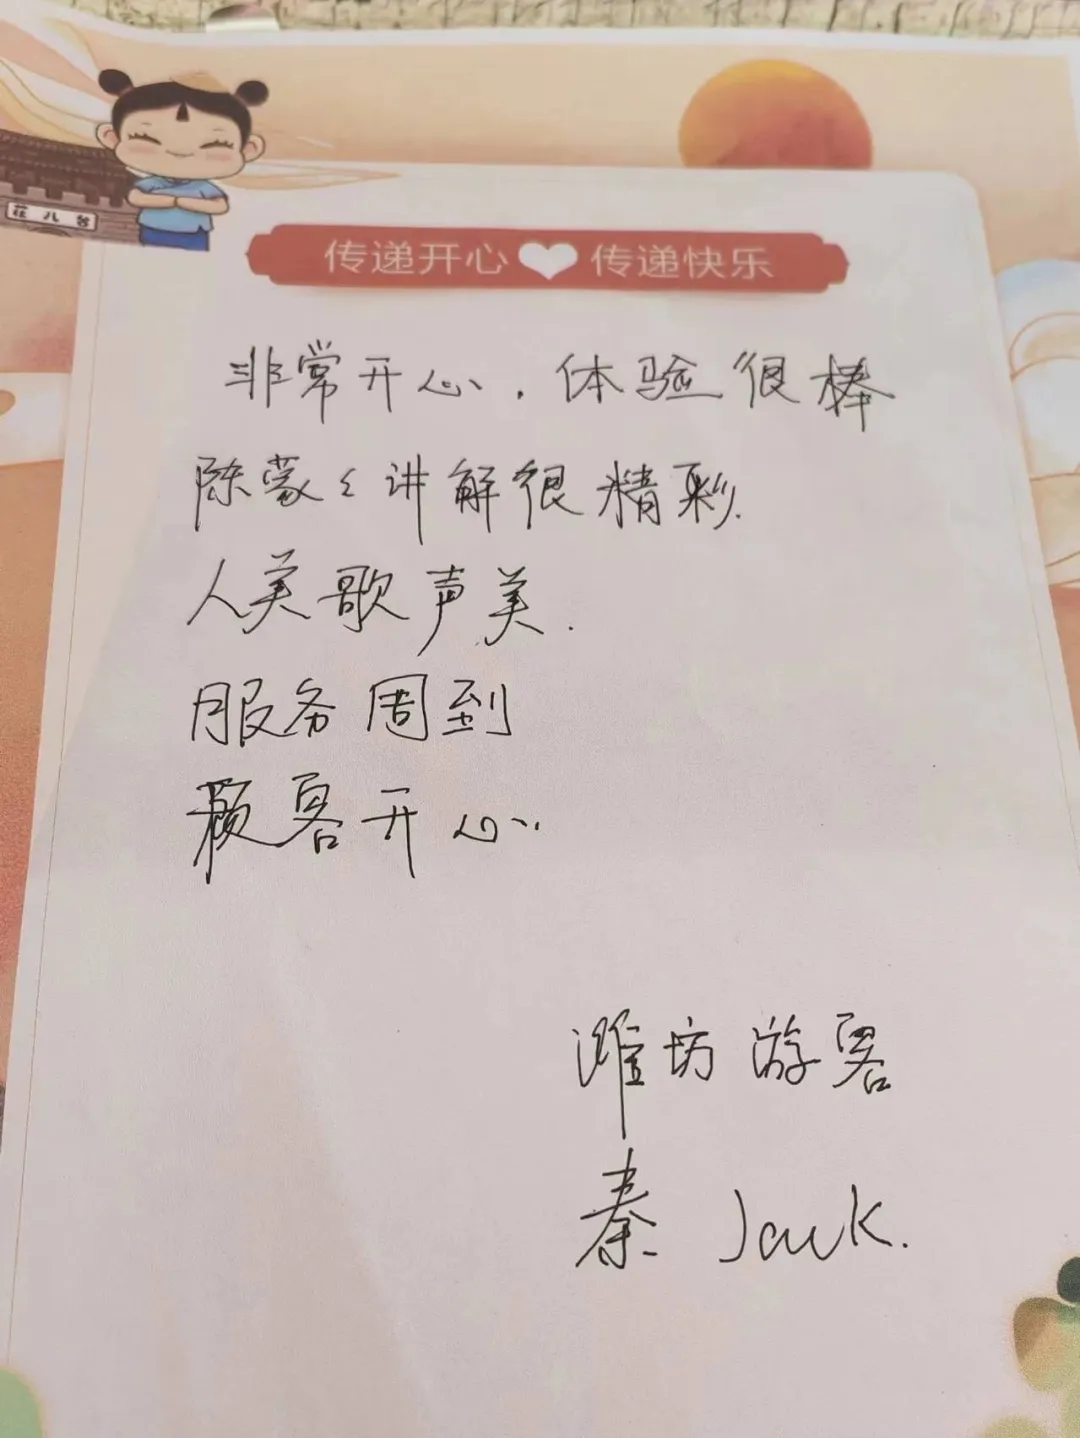 花儿昝
传递开心 传递快乐
非常开心，体验很棒
陈蒙々讲解很精彩.
人美歌声美.
服务周到
顾客开心.
潍坊游客
秦 Jack.